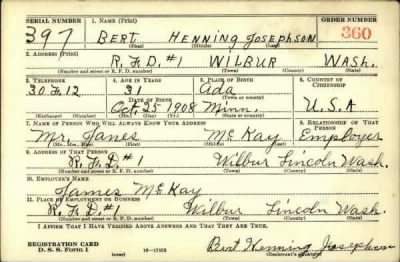 SERIAL NUMBER 1. NAME (Print) ORDER NUMBER
397 BERT HENNING JOSEPHSON 360
(First) (Middle) (Last)
2. ADDRESS (Print)
R.F.D.#1 WILBUR WASH.
(Number and street or R. F. D. number) (Town) (County) (State)
3. TELEPHONE 4. AGE IN YEARS 5. PLACE OF BIRTH 6. COUNTRY OF CITIZENSHIP
30 F 12 31 Ada
DATE OF BIRTH (Town or county)
Oct. 25 1908 Minn. U.S.A
(Exchange) (Number) (Mo.) (Day) (Yr.) (State or country)
7. NAME OF PERSON WHO WILL ALWAYS KNOW YOUR ADDRESS 8. RELATIONSHIP OF THAT PERSON
Mr. James McKay Employer
(Mr., Mrs., Miss) (First) (Middle) (Last)
9. ADDRESS OF THAT PERSON
R.F.D#1 Wilbur Lincoln Wash.
(Number and street or R. F. D. number) (Town) (County) (State)
10. EMPLOYER'S NAME
James McKay
11. PLACE OF EMPLOYMENT OR BUSINESS
R.F.D.#1 Wilbur Lincoln Wash.
(Number and street or R. F. D. number) (Town) (County) (State)
I AFFIRM THAT I HAVE VERIFIED ABOVE ANSWERS AND THAT THEY ARE TRUE.
REGISTRATION CARD
D. S. S. Form 1 (over) 16-17105 Bert Henning Josephson
(Registrant's signature)